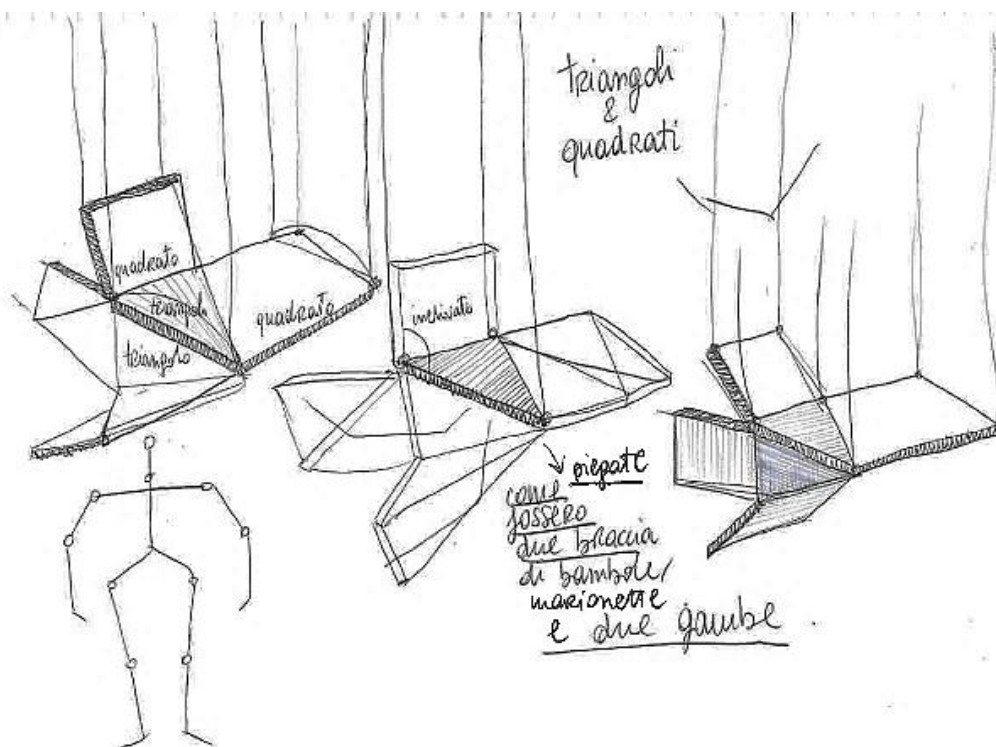 triangoli
&
quadrati
quadrato
triangolo
quadrato
triangolo
inclinato
piegate
come
fossero
due braccia
di bambole/
marionette
e due gambe.